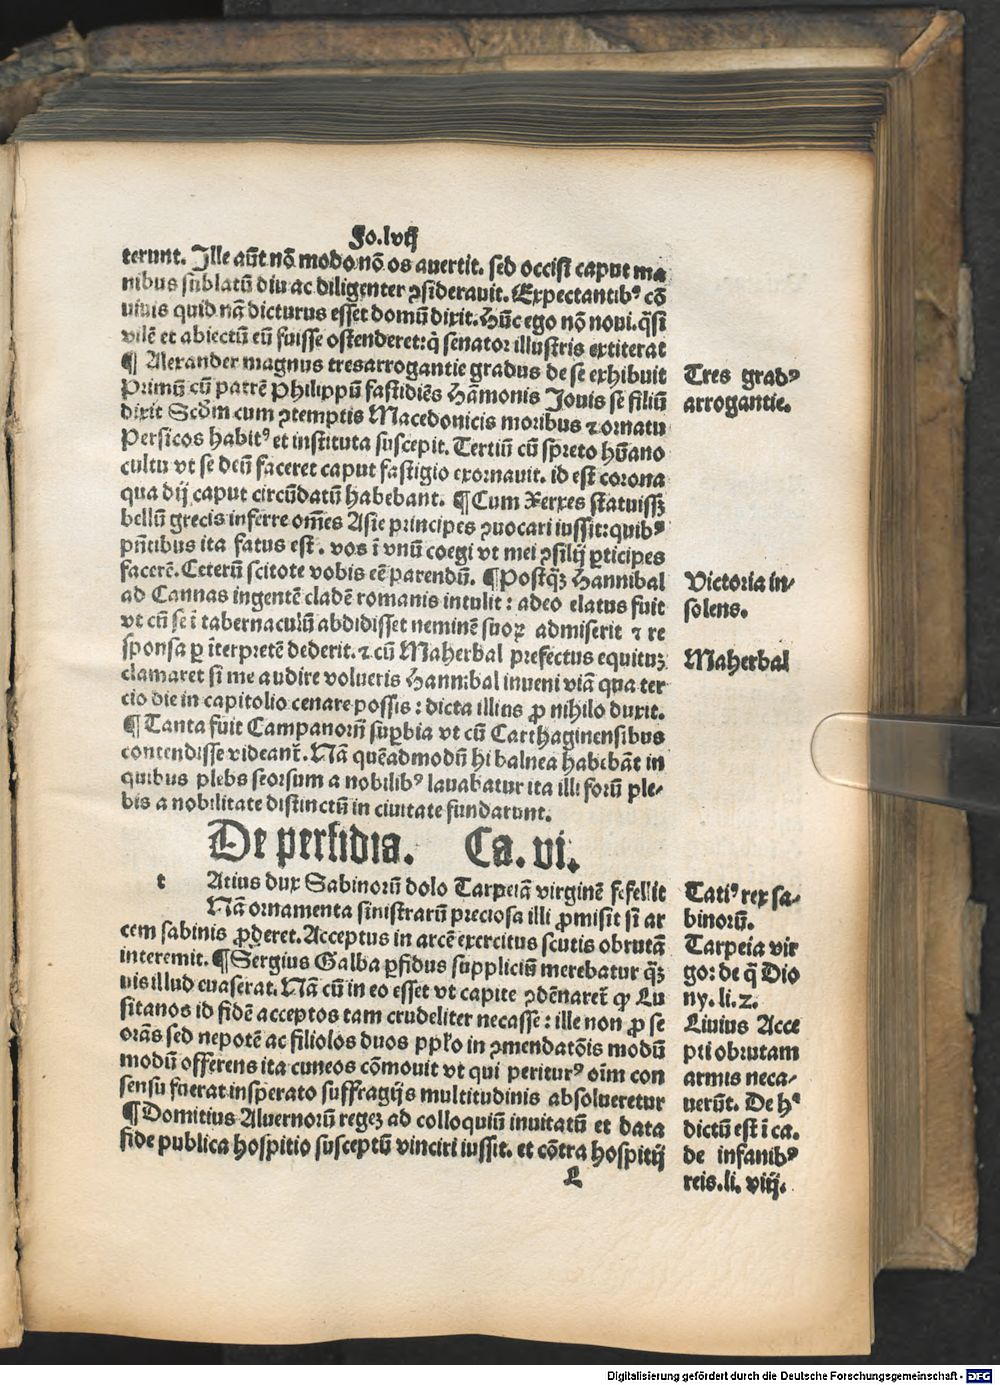 Fo.lvij
terunt. Ille aūt nō modo nō os auertit. sed occisi caput ma
nibus sublatū diu ac diligenter ꝯsiderauit. Expectantibꝰ cō
uiuis quid nā dicturus esset domū dixit. Hūc ego nō noui. q̄si
vilē et abiectū eū fuisse ostenderet: q̄ senator illustris extiterat
¶ Alexander magnus tres arrogantie gradus de se exhibuit
Primū cū patrē Philippū fastidiēs Hāmonis Iouis se filiū
dixit Scd̄m cum ꝯtemptis Macedonicis moribus ⁊ ornatu
Persicos habitꝰ et instituta suscepit. Tertiū cū spreto hūano
cultu vt se deū faceret caput fastigio exornauit. id est corona
qua dij caput circūdatū habebant. ¶ Cum Xerxes statuissꝫ
bellū grecis inferre om̄es Asie principes ꝯuocari iussit: quibꝰ
pn̄tibus ita fatus est. vos ī vnū coegi vt mei ꝯsilij ꝑticipes
facerē. Ceterū scitote vobis eē parendū. ¶ Postq̄ꝫ Hannibal
ad Cannas ingentē cladē romanis intulit: adeo elatus fuit
vt cū se ī tabernaculū abdidisset neminē suoꝝ admiserit ⁊ re
sponsa ꝑ īterpretē dederit. ⁊ cū Maherbal prefectus equituꝫ
clamaret si me audire volueris Hannibal inueni viā qua ter
cio die in capitolio cenare possis: dicta illius ꝓ nihilo duxit.
¶ Tanta fuit Campanorū suꝑbia vt cū Carthaginensibus
contendisse videant̄. Nā quēadmodū hi balnea habebāt in
quibus plebs seorsum a nobilibꝰ lauabatur ita illi forū ple-
bis a nobilitate distinctū in ciuitate fundarunt.
De perfidia. Ca. vi.
t Atius dux Sabinorū dolo Tarpeiā virginē fefellit
Nā ornamenta sinistrarū preciosa illi ꝓmisit si ar
cem sabinis ꝓderet. Acceptus in arcē exercitus scutis obrutā
interemit. ¶ Sergius Galba ꝑfidus suppliciū merebatur q̄ꝫ
uis illud euaserat. Nā cū in eo esset vt capite ꝯdēnaret̄ ꝙ Lu
sitanos id fidē acceptos tam crudeliter necasse: ille non ꝓ se
orās sed nepotē ac filiolos duos ppl̄o in ꝯmendatōis modū
modū offerens ita cuneos cōmouit vt qui periturꝰ oīm con
sensu fuerat insperato suffragijs multitudinis absolueretur
¶ Domitius Aluernorū regeꝫ ad colloquiū inuitatū et data
fide publica hospitio susceptū vinciri iussit. et cōtra hospitij
L
Tres gradꝰ
arrogantie.
Victoria in-
solens.
Maherbal
Tatiꝰ rex sa-
binorū.
Tarpeia vir
go: de q̄ Dio
ny. li. 2.
Liuius Acce
pti obrutam
armis neca-
uerūt. De hꝰ
dictū est ī ca.
de infanibꝰ
reis. li. viij.
Digitalisierung gefördert durch die Deutsche Forschungsgemeinschaft - DFG